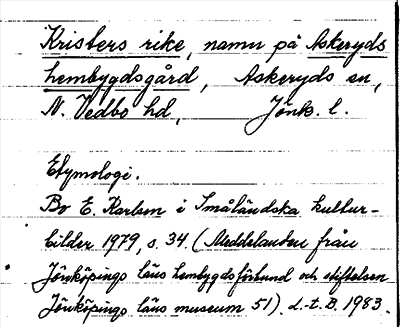 Kristers rike, namn på Askeryds
hembygdsgård, Askeryds sn,
N. Vedbo hd, Jönk. l.
Etymologi.
Bo E. Karlson i Småländska kultur-
bilder 1979, s. 34. (Meddelanden från
Jönköpings läns hembygdsförbund och stiftelsen
Jönköpings läns museum 51). d.-t. B. 1983.